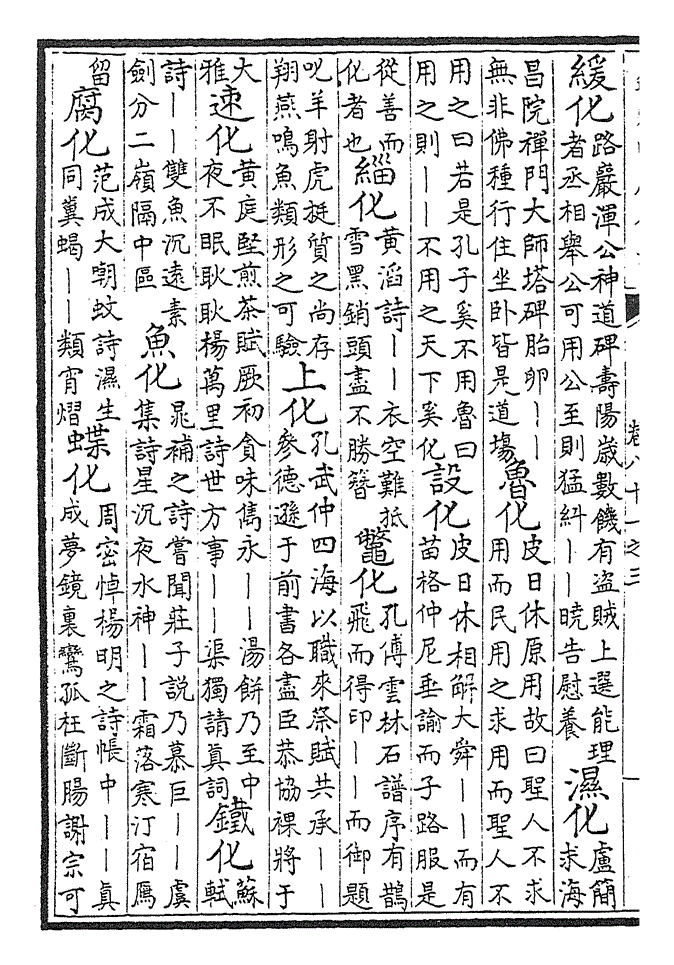 卷八十一之三
一
緩化路巖渾公神道碑壽陽歲數饑有盜賊上選能理
者丞相舉公可用公至則猛糾丨丨曉告慰養濕化盧簡
求海
昌院禪門大師塔碑胎卵丨丨
無非佛種行住坐卧皆是道場魯化皮日休原用故曰聖人不求
用而民用之求用而聖人不
用之曰若是孔子奚不用魯曰
用之則丨丨不用之天下奚化設化皮日休相解大舜丨丨而有
苗格仲尼垂諭而子路服是
從善而
化者也緇化黄滔詩丨丨衣空難抵
雪黑銷頭盡不勝簪鼈化孔傅雲林石譜序有鵲
飛而得印丨丨而御題
叱羊射虎挺質之尚存
翔燕鳴魚類形之可驗上化孔武仲四海以職來祭賦共承丨丨
參德遜于前書各盡臣恭協祼將于
大
雅速化黄庭堅煎茶賦厥初貪味雋永丨丨湯餅乃至中
夜不眠耿耿楊萬里詩世方事丨丨渠獨請真詞鐵化蘇
軾
詩丨丨雙魚沉遠素
劍分二嶺隔中區魚化晁補之詩嘗聞莊子説乃慕巨丨丨虞
集詩星沉夜水神丨丨霜落寒汀宿鴈
留腐化范成大嘲蚊詩濕生
同糞蝎丨丨類宵熠蝶化周密悼楊明之詩帳中丨丨真
成夢鏡裏鸞孤枉斷腸謝宗可